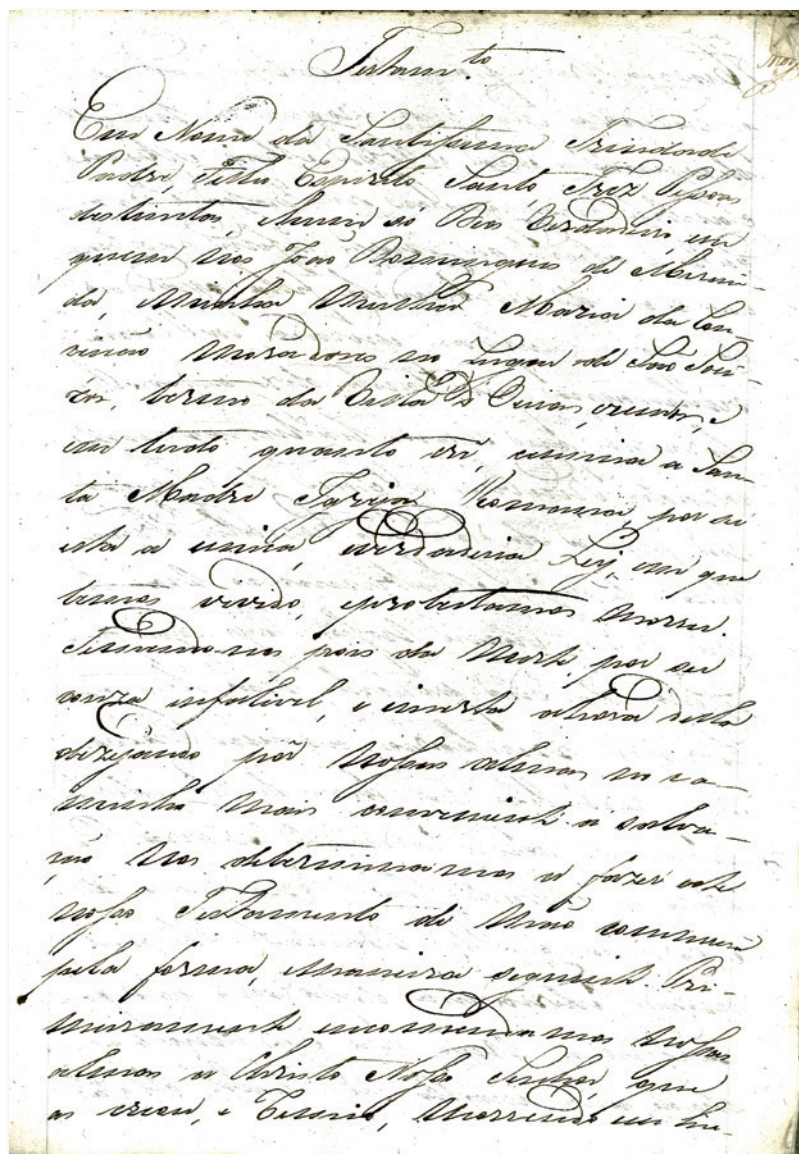 Testam.to
Em Nome da Santissima Trindade
Padre, Filho Espirito Santo, Trez Pessoas
destintas, hum só Deos Verdadeiro, em
quem nos João Domingues de Miran-
da, Minha Mulher Maria da Con
ceição Moradores no Lugar de São Lou-
ço, termo da Villa de, cremos, e
em tudo quanto cré, ensina a San-
ta Madre Igreja Romana, por ser
esta a unica, verdadeira Ley, em que
temos vivido, eprotestamos morrer.
Temendo nos pois da Morte, por ser
couza infalivel, e incerta ahora della
dezejando pôr nossas almas no ca-
minho mais conveniente á salva-
ção Nos determinamos a fazer este
nosso Testamento de Mão commum
pela forma, Maneira seguinte. Pri-
meiramente encomendamos nossas
almas a Christo Nosso Senhor, que
as creou, e Remio, Morrendo em hu-